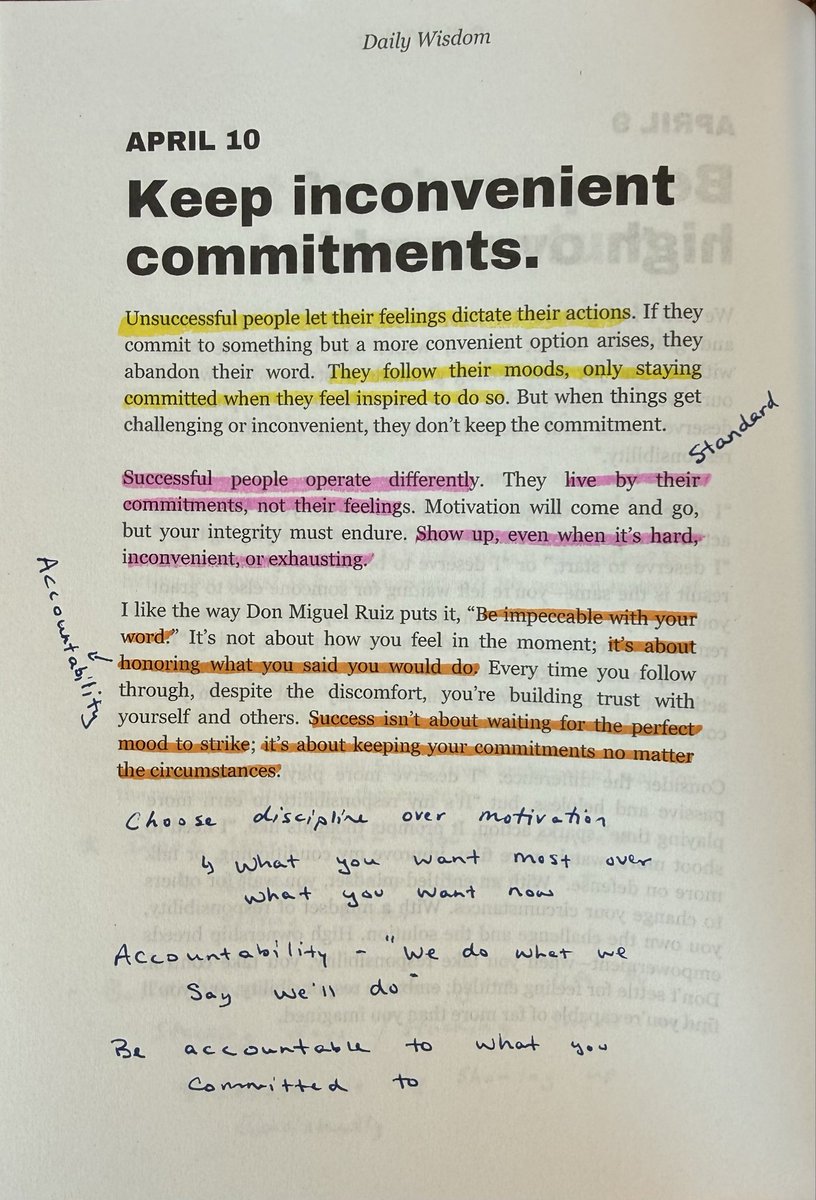 Daily Wisdom
APRIL 10
Keep inconvenient
commitments.
Unsuccessful people let their feelings dictate their actions. If they
commit to something but a more convenient option arises, they
abandon their word. They follow their moods, only staying
committed when they feel inspired to do so. But when things get
challenging or inconvenient, they don't keep the commitment.
Standard
Successful people operate differently. They live by their
commitments, not their feelings. Motivation will come and go,
but your integrity must endure. Show up, even when it's hard,
inconvenient, or exhausting.
Accountability
I like the way Don Miguel Ruiz puts it, “Be impeccable with your
word.” It's not about how you feel in the moment; it's about
honoring what you said you would do. Every time you follow
through, despite the discomfort, you're building trust with
yourself and others. Success isn't about waiting for the perfect
mood to strike; it's about keeping your commitments no matter
the circumstances.
Choose discipline over motivation
↳ What you want most over
what you want now
Accountability - "We do what we
Say we'll do"
Be accountable to what you
committed to